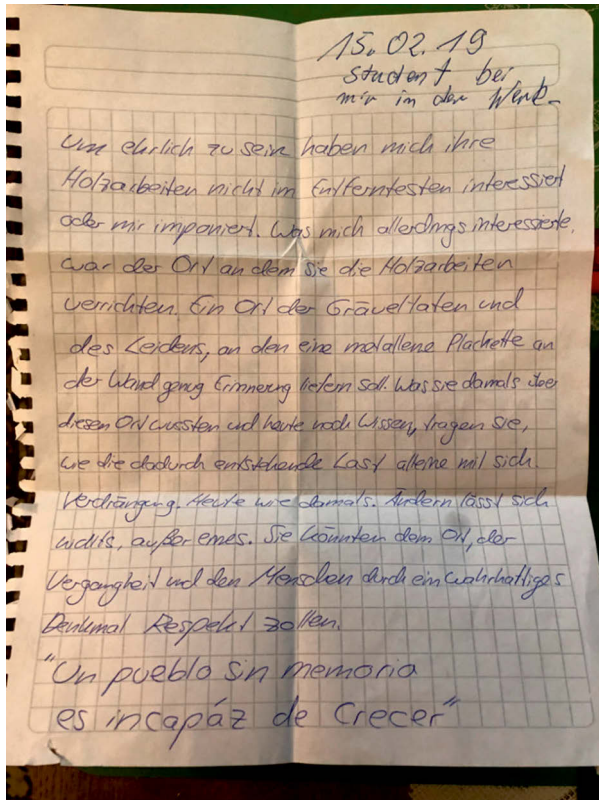 15.02.19
Student bei
mir in der Werk-
Um ehrlich zu sein haben mich ihre
Holzarbeiten nicht im Entferntesten interessiert
oder mir imponiert. Was mich allerdings interessierte,
war der Ort an dem sie die Holzarbeiten
verrichten. Ein Ort der Gräueltaten und
des Leidens, an den eine metallene Plachette an
der Wand genug Erinnerung liefern soll. Was sie damals über
diesen Ort wussten und heute noch Wissen, tragen sie,
wie die dadurch entstehende Last alleine mit sich.
Verdrängung. Heute wie damals. Ändern lässt sich
nichts, außer eines. Sie könnten dem Ort, der
Vergangheit und den Menschen durch ein wahrhaftiges
Denkmal Respekt zollen.
"Un pueblo sin memoria
es incapáz de Crecer"